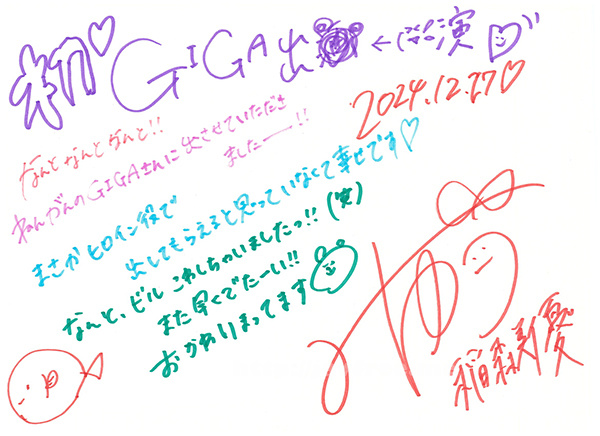 初♡GIGA出 ←(笑)演
2024.12.27♡
なんとなんとなんと!!
ねんがんのGIGAさんに出させていただき
ましたー!!
まさかヒロイン役で
出してもらえると思っていなくて幸せです♡
なんと、ビルこわしちゃいましたっ!!(笑)
また早くでたーい!!
おかわりまってます
稲森美優